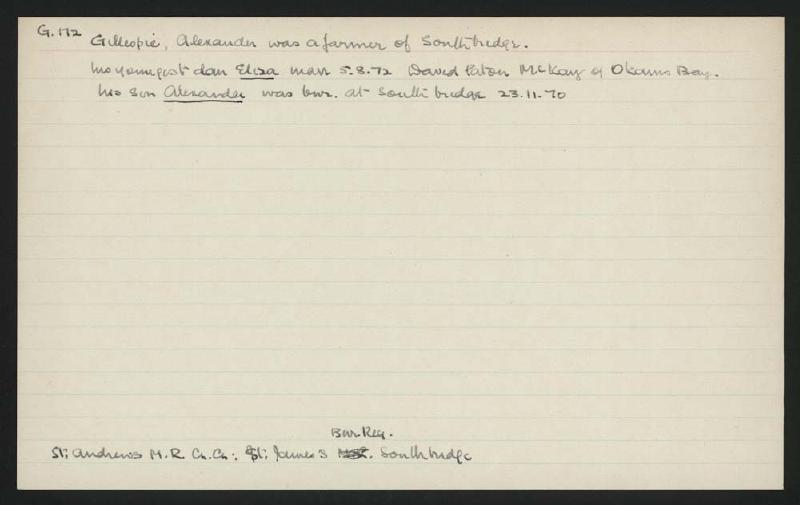 G.172
Gillespie, Alexander was a farmer of Southbridge.
his youngest dau Eliza marr 5.8.72 David Paton McKay of Okains Bay.
his son Alexander was bur. at Southbridge 23.11.70
Bur. Reg.
St. Andrews M.R. Ch.Ch.: St. James's Southbridge